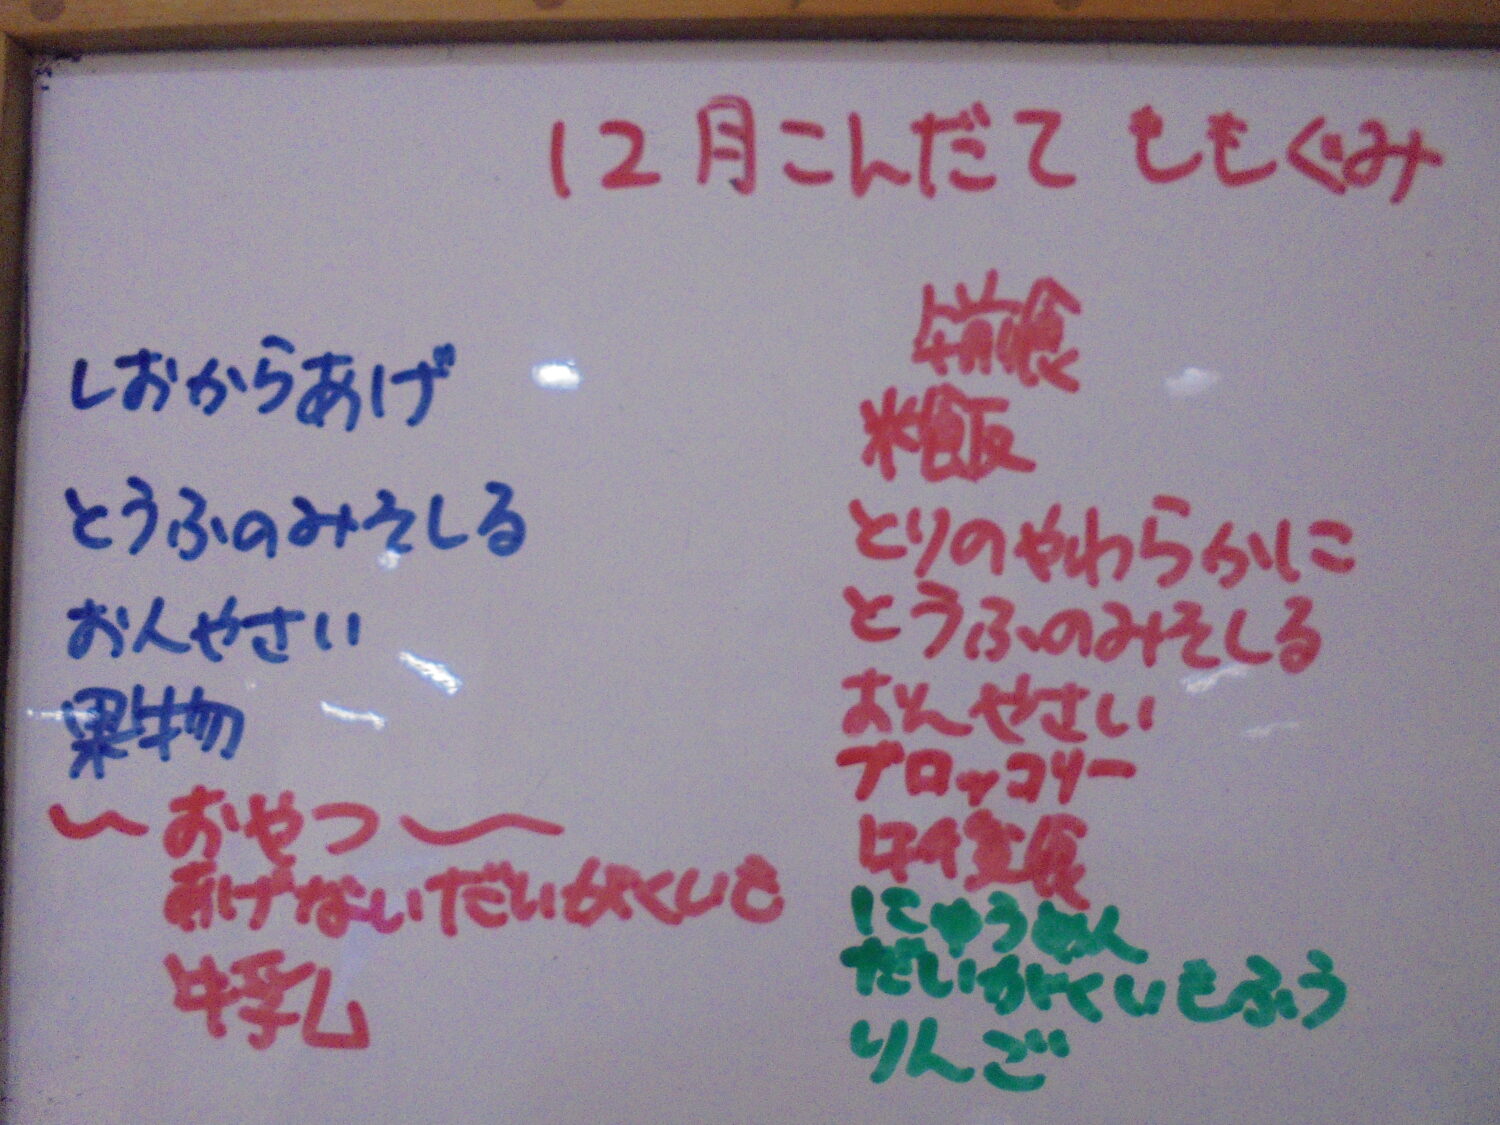 12月こんだて ももぐみ
しおからあげ
とうふのみそしる
おんやさい
果物
～おやつ～
あげないだいがくいも
牛乳
午前食
米飯
とりのやわらかに
とうふのみそしる
おんやさい
ブロッコリー
午後食
にゅうめん
だいがくいもふう
りんご